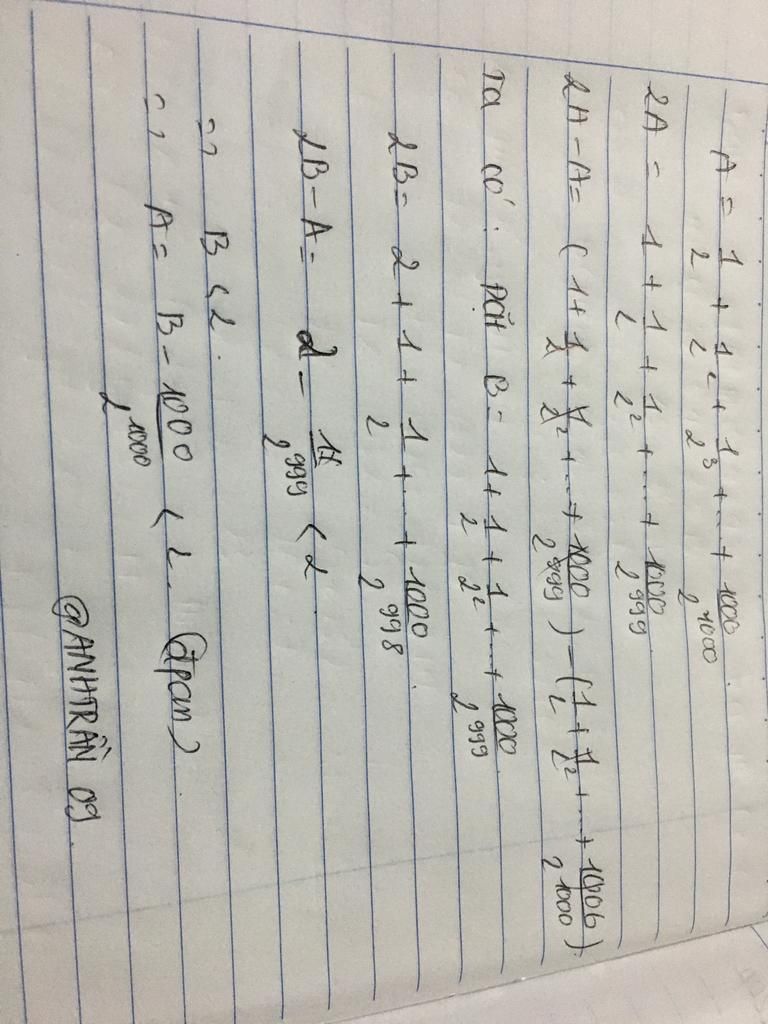 A = 1/2 + 1/2² + 1/2³ + ... + 1000/2¹⁰⁰⁰.
2A = 1 + 1/2 + 1/2² + ... + 1000/2⁹⁹⁹
2A - A = (1 + 1/2 + 1/2² + ... + 1000/2⁹⁹⁹) - (1/2 + 1/2² + ... + /2¹⁰⁰⁰).
Ta có: Đặt B = 1 + 1/2 + 1/2² + ... + 1000/2⁹⁹⁹
2B = 2 + 1 + 1/2 + ... + 1000/2⁹⁹⁸.
2B - A = 2 - /2⁹⁹⁹ < 2.
=> B < 2.
=> A = B - 1000/2¹⁰⁰⁰ < 2. (đpcm)
@ANHTRẦN 09.